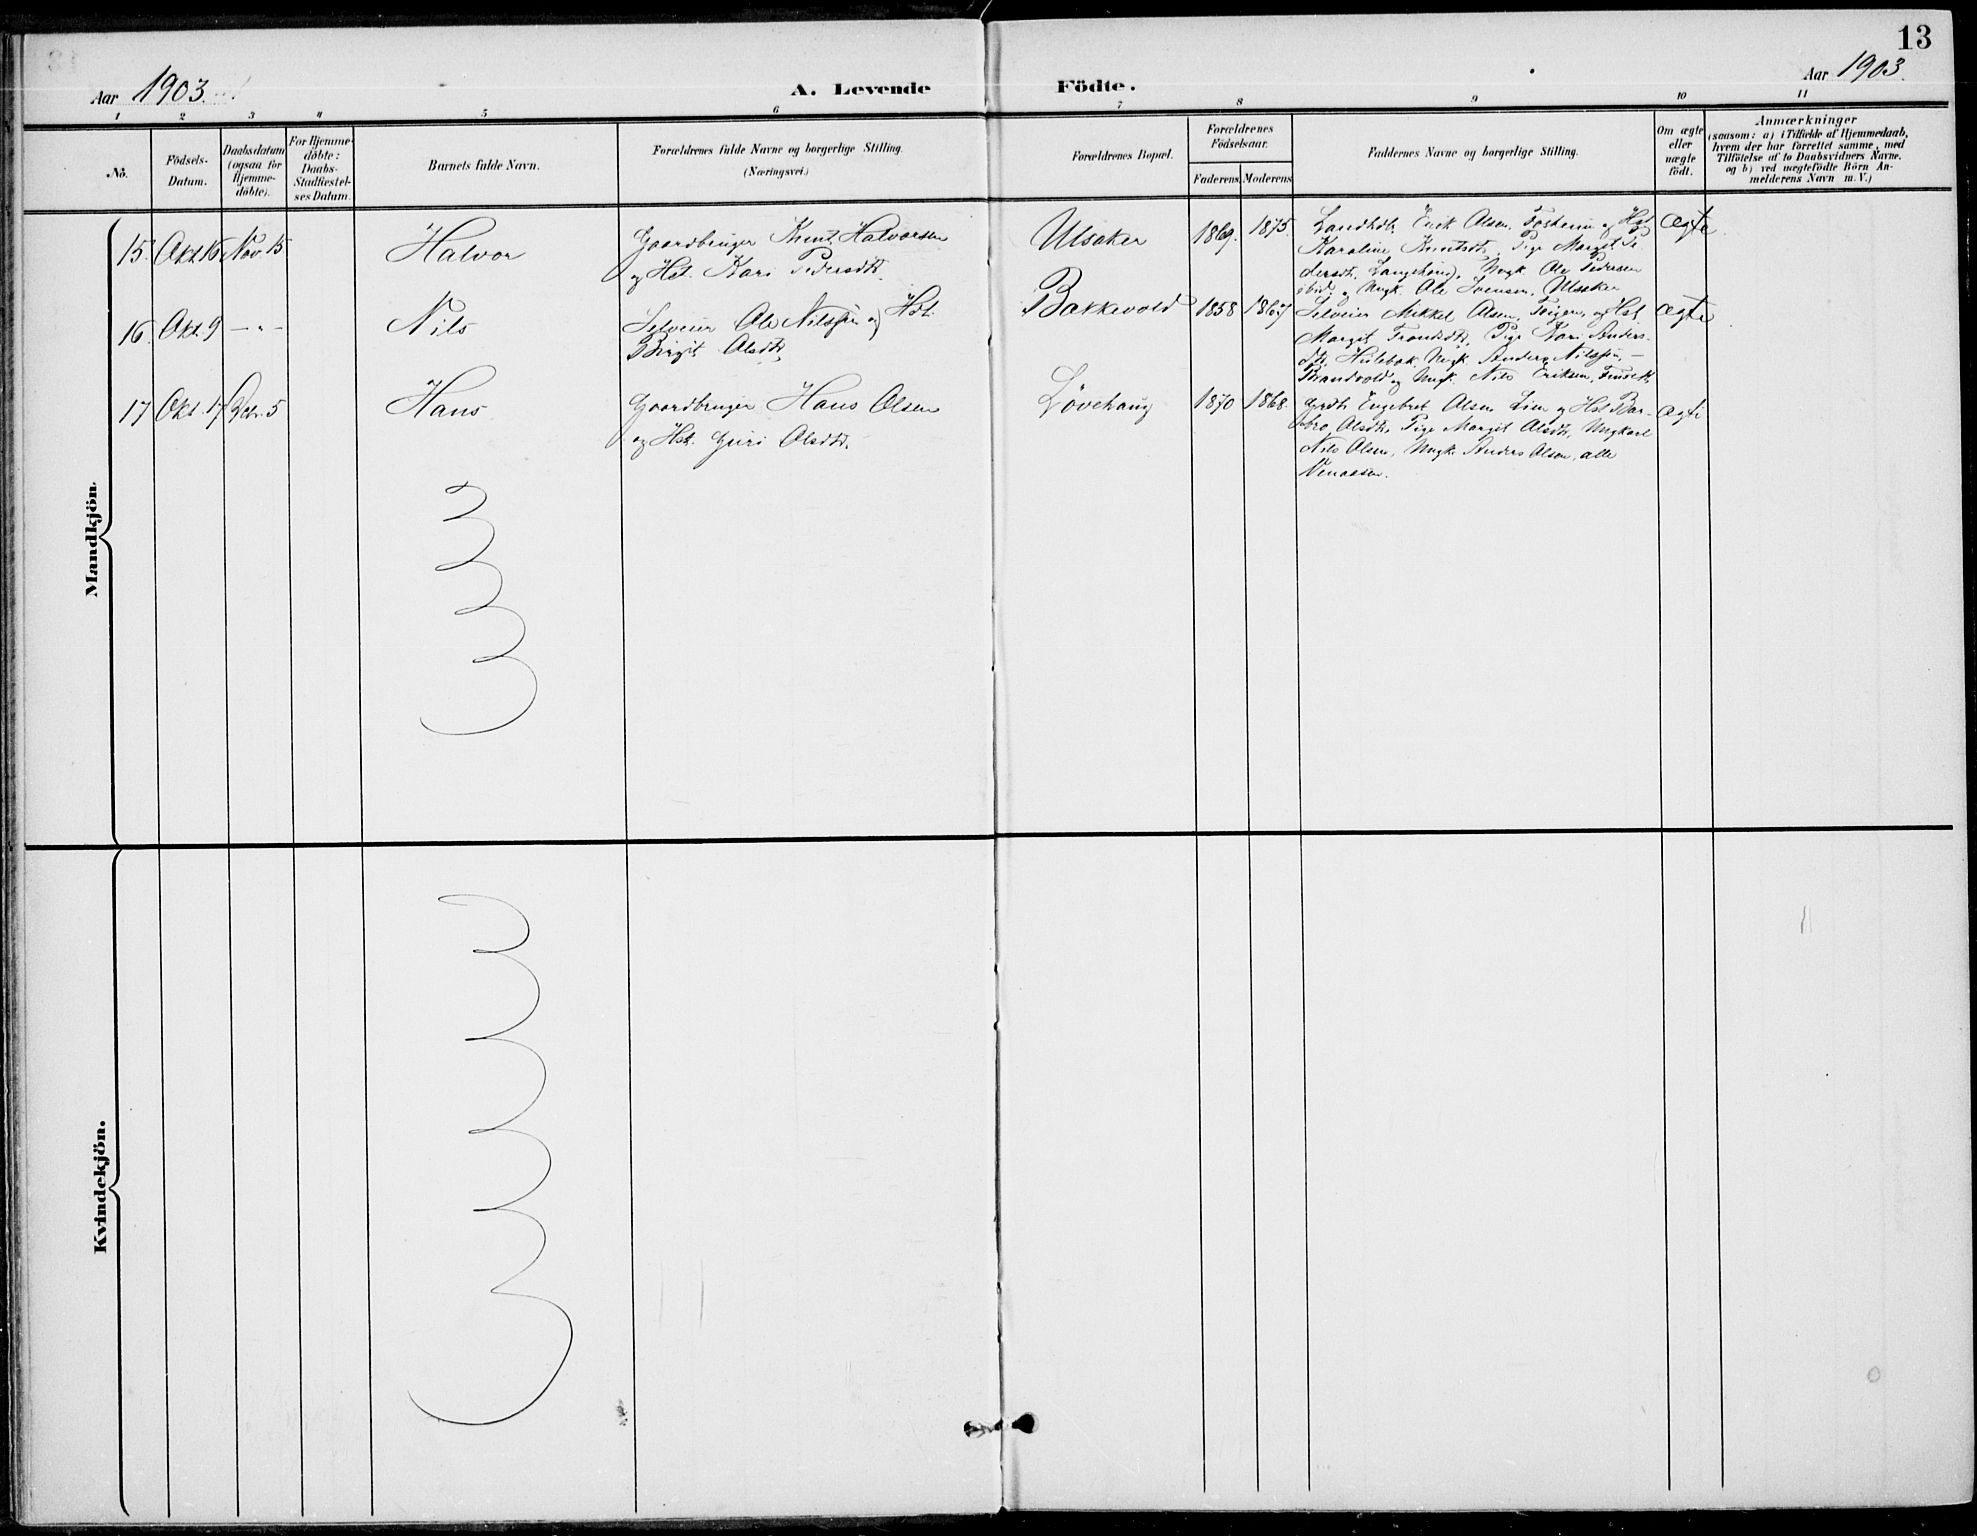 13
Aar 1903.
A. Levende Födte.
Aar 1903.
1 2 3 4 5 6 7 8 9 10 11
No.
Födsels-
Datum.
Daabsdatum
(ogsaa for
Hjemme-
döbte).
For Hjemme-
döbte:
Daabs-
Stadfæstel-
ses Datum.
Barnets fulde Navn.
Forældrenes fulde Navne og borgerlige Stilling.
(Næringsvei.)
Forældrenes Bopæl.
Forældrenes
Födselsaar.
Faderens. Moderens.
Faddernes Navne og borgerlige Stilling.
Om ægte
eller
uægte
födt.
Anmærkninger
(saasom: a) i Tilfælde af Hjemmedaab,
hvem der har forrettet samme, med
Tilföielse af to Daabsvidners Navne.
og b) ved uægtefödte Börn An-
melderens Navn m. V.)
Mandkjön.
15. Okt. 16 Nov. 15 Halvor
Gaardbruger Knut Halvorsen
og Hst. Kari Pedersdt.
Ulsaker 1869. 1875.
Landhdl. Erik Olsen, og Hst
Karoline Knutsdt., Pige Margit Pe-
dersdt. Langehaug, Ungk. Ole Pedersen
ibid. og Ungk. Ole Svensen, Ulsaker
Ægte
16. Okt. 9 -"- Nils
Selveier Ole Nilssen og Hst.
Birgit Olsdt.
Bakkevold 1858 1867
Selveier Mikkel Olsen, og Hst
Margit Trondsdt., Pige Kari Anders-
dt. Hulebak, Ungk. Anders Nilssen,
og Ungk. Nils Eriksen,
Ægte
17 Okt. 17 Dcbr. 5 Hans
Gaardbruger Hans Olsen
og Hst. Guri Olsdt.
Løvehaug 1870 1868.
Grdb. Engebret Olsen Lien og Hst. Bar-
bro Olsdt., Pige Margit Olsdt., Ungkarl
Nils Olsen, Ungk. Anders Olsen, alle
Venaasen.
Ægte
Kvindekjön.